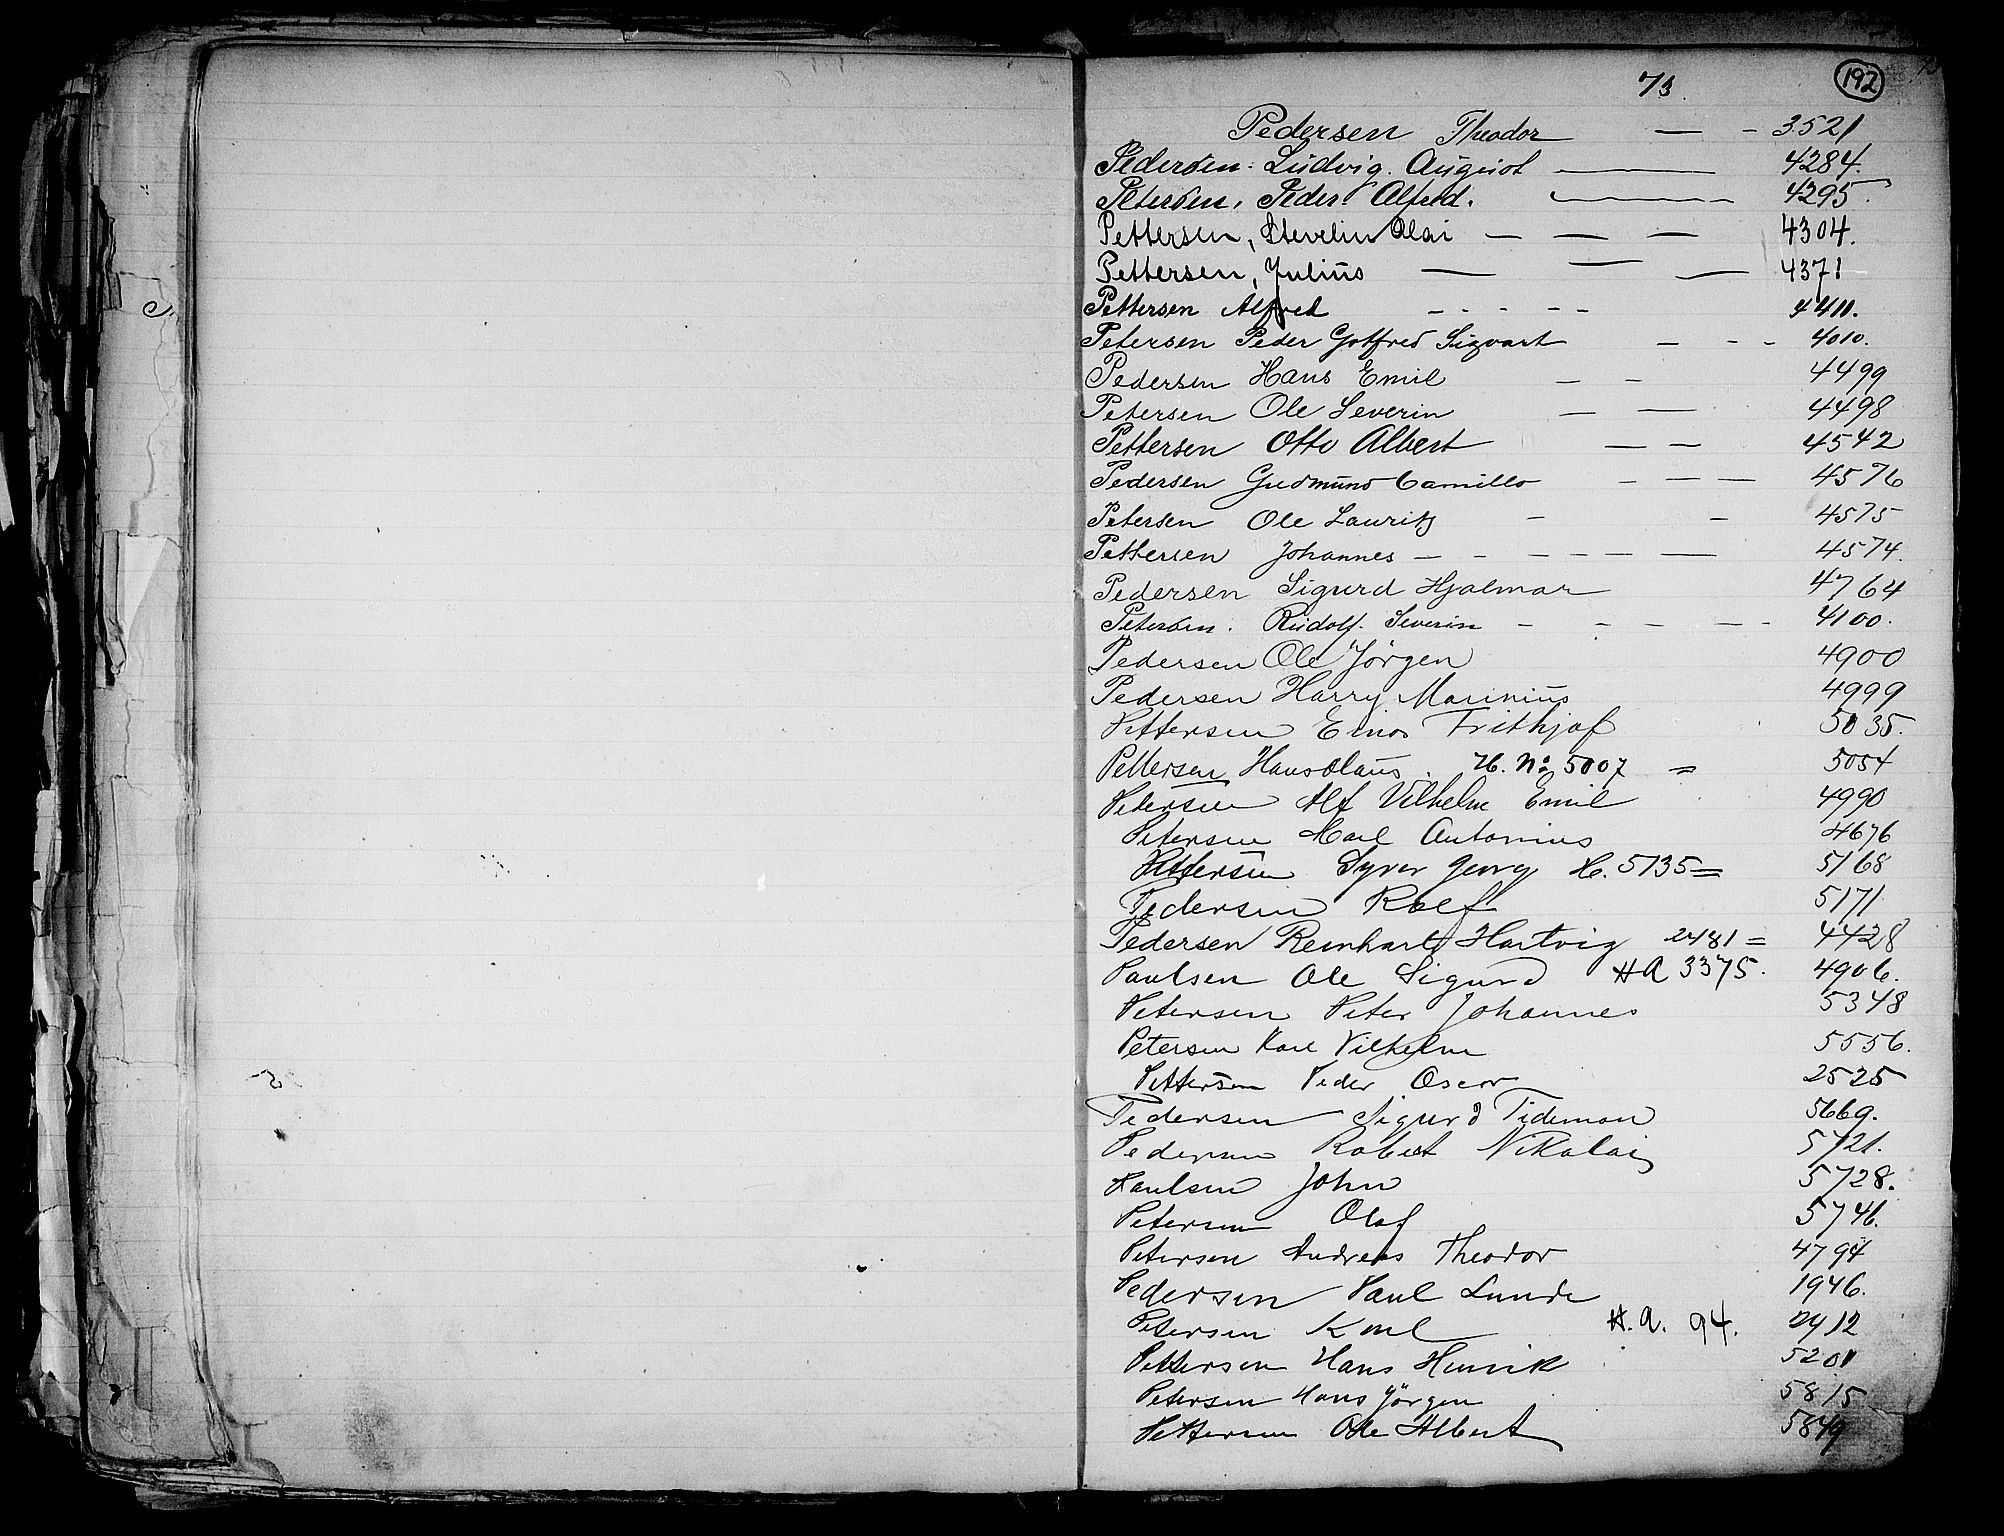 73. 192
Pedersen Theodor — - 3521
Pedersen. Ludvig. August — 4284.
Petersen, Peder Alfred. — 4295.
Pettersen, Stevelin Olai — — — 4304.
Pettersen, Julius — — — 4371
Pettersen Alfred - - - - - 4411.
Petersen Peder Gotfred Sigvart — - - 4010.
Pedersen Hans Emil — — 4499
Petersen Ole Severin — — 4498
Pettersen Otto Albert — — 4542
Pedersen Gudmund Camillo - — — 4576
Petersen Ole Lauritz - - 4575
Pettersen Johannes — - - — — — 4574.
Pedersen Sigurd Hjalmar 4764
Petersen. Rudolf. Severin - - - - - 4100.
Pedersen Ole Jörgen 4900
Pedersen Harry Marinius 4999
Pettersen Einar Frithjof 5035.
Pettersen Hans Olaus. H. No 5007 = 5054
Pedersen Alf Vilhelm Emil 4990
Petersen Karl Antonius 4676
Pettersen Syver Georg H. 5135 = 5168
Pedersen Rolf 5171
Pedersen Reinhart Hartvig 2481 = 4428
Paulsen Ole Sigurd H A 3375. 4906.
Petersen Peter Johannes 5348
Petersen Karl Vilhelm 5556.
Pettersen Peder Oscar 2525
Pedersen Sigurd Tideman 5669.
Pedersen Robert Nikolai 5721.
Paulsen John 5728.
Petersen Olaf 5746.
Petersen Andreas Theodor 4794
Pedersen Paul Lunde 1946.
Petersen Karl H. A. 94. 2412
Pettersen Hans Henrik 5201
Petersen Hans Jörgen 5815
Pettersen Ole Albert 5849